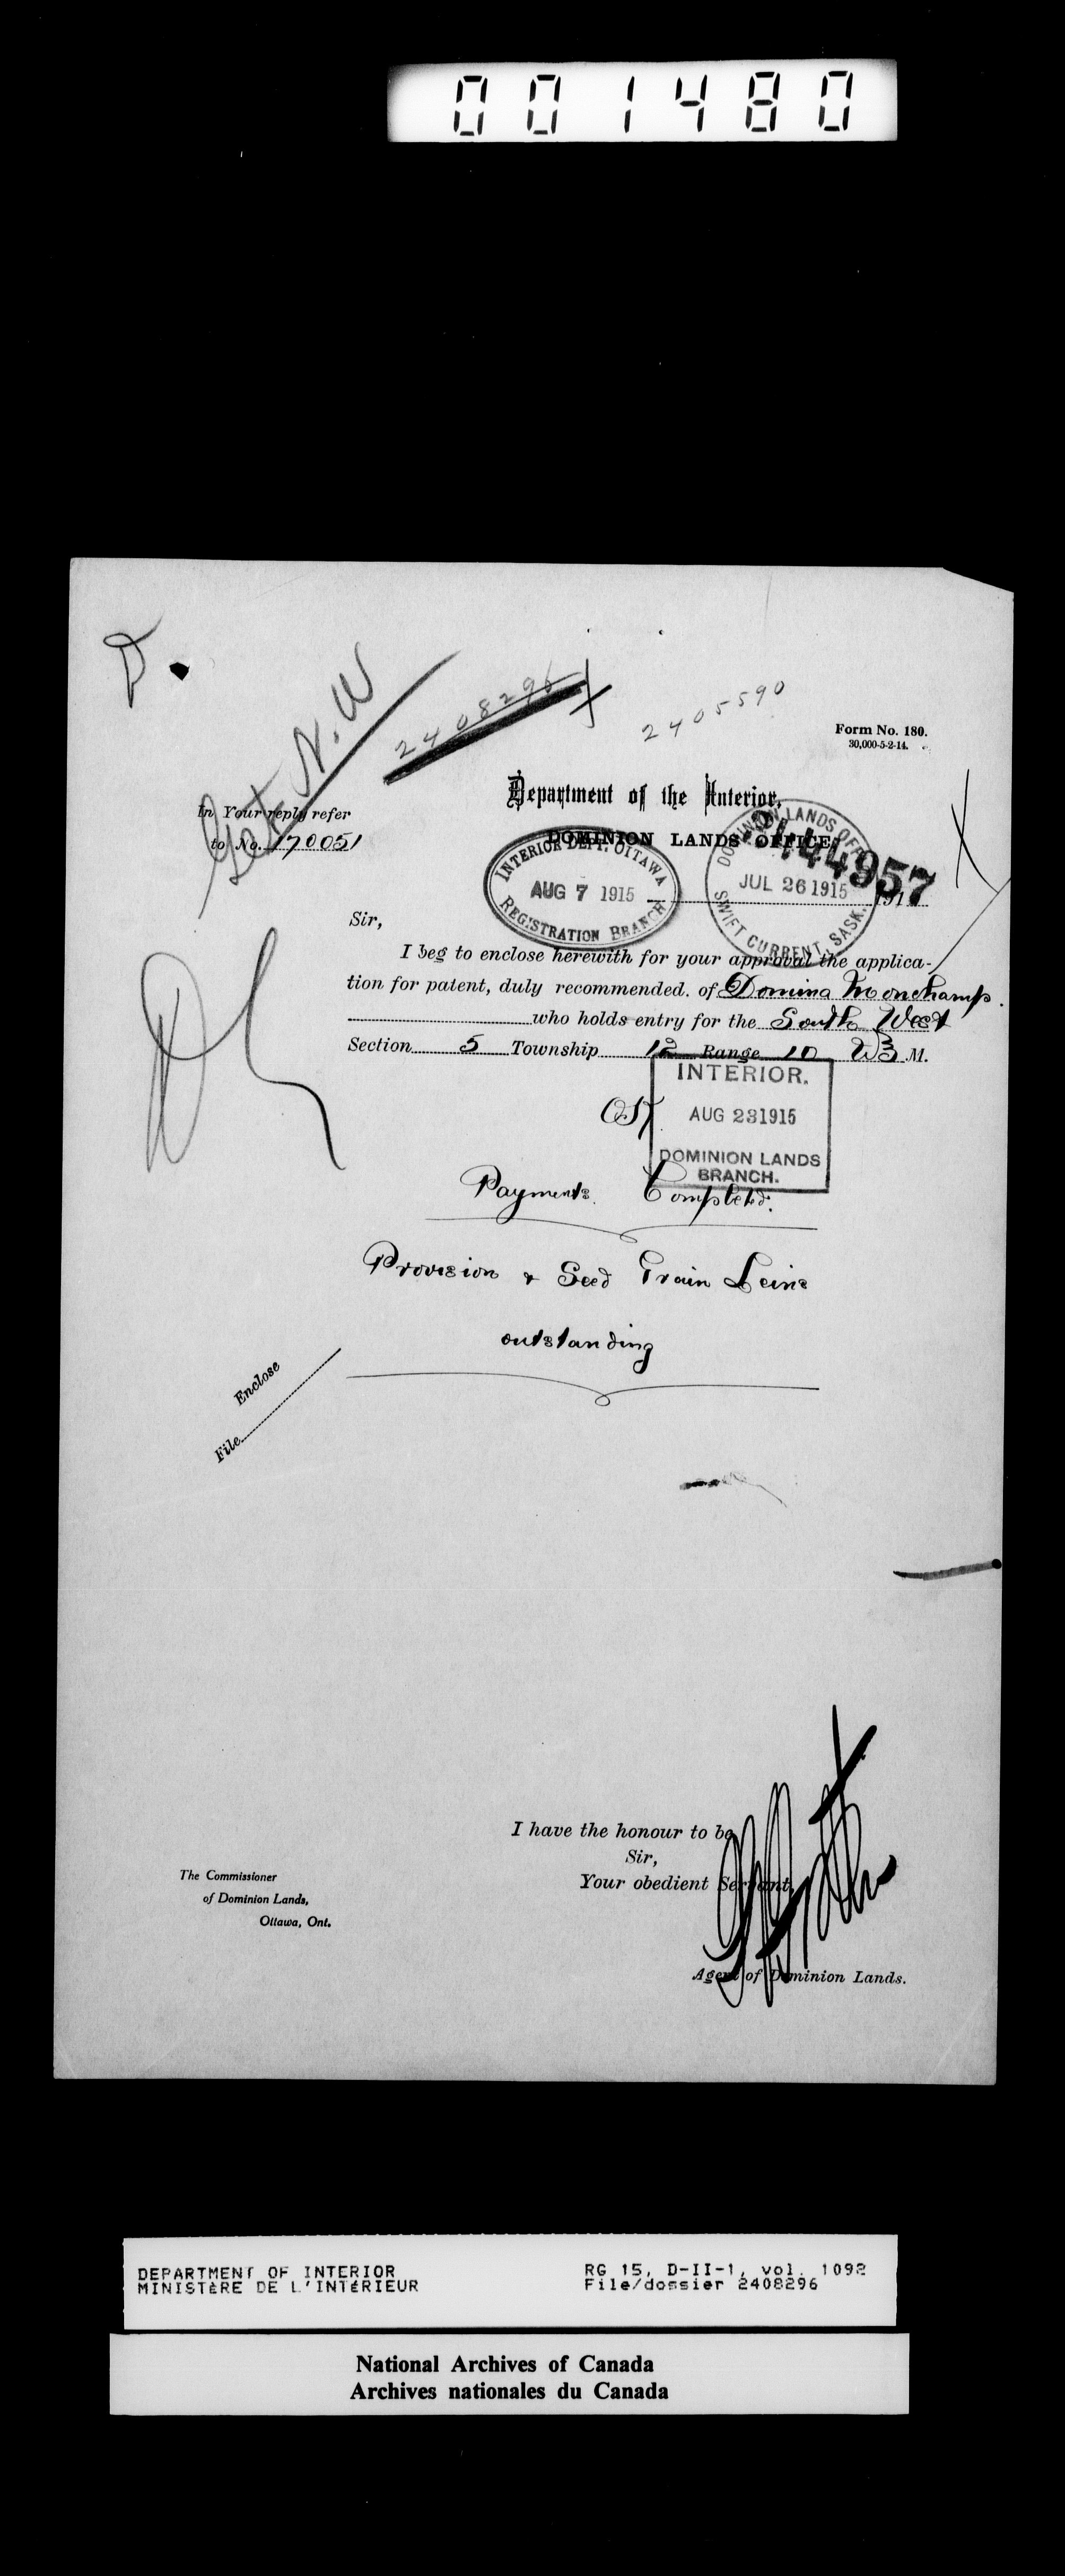 001480
D.
Get N.W
2408296
2405590
Form No. 180.
30,000-5-2-14.
Department of the Interior,
In Your reply refer
to No. 170051
DOMINION LANDS OFFICE,
INTERIOR DEPT. OTTAWA
AUG 7 1915
REGISTRATION BRANCH
DOMINION LANDS OFFICE
JUL 26 1915
SWIFT CURRENT, SASK.
2444957
191
Sir,
I beg to enclose herewith for your approval the applica-
tion for patent, duly recommended. of Domina Monchamp.
who holds entry for the South West
Section 5 Township 12 Range 10 W3 M.
INTERIOR.
AUG 23 1915
DOMINION LANDS
BRANCH.
Payments Completed.
Provision & Seed Grain Leins
outstanding
Enclose
File
I have the honour to be
Sir,
Your obedient Servant,
The Commissioner
of Dominion Lands,
Ottawa, Ont.
Agent of Dominion Lands.
DEPARTMENT OF INTERIOR
MINISTÈRE DE L'INTÉRIEUR
RG 15, D-II-1, vol. 1092
File/dossier 2408296
National Archives of Canada
Archives nationales du Canada